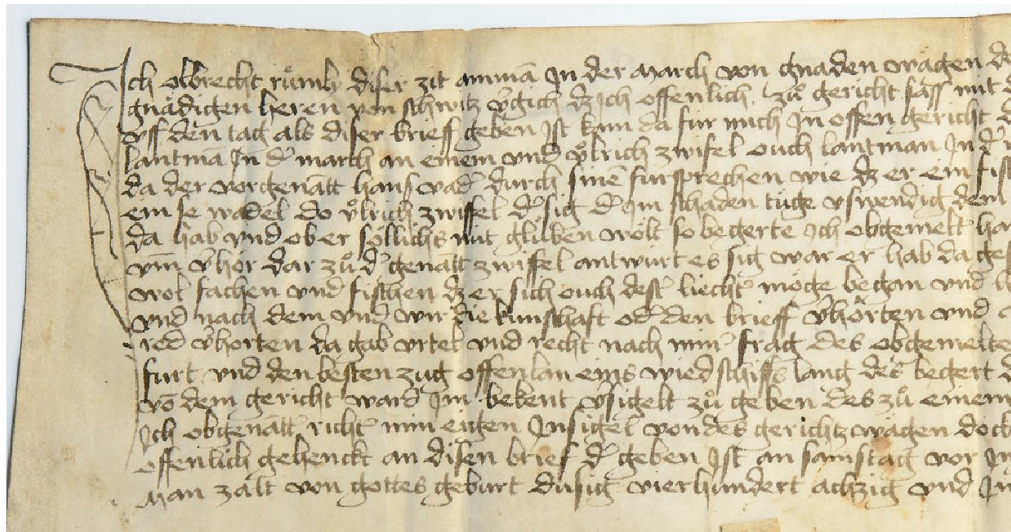 Ich olbrecht rům̄ly diser zit am̄ā In der March von gnaden wägen de
gnädigen heren von schwitz v̓gich dz Ich offenlich zů gericht sass mit
vff den tag als diser brieff geben Ist kam da fur mich In offen gericht d
lantmā In d̓ march an einem vnd ůlrich zwifel ouch lantman In d̓
da der vorgenātt hans wad̓ durch sinē fursprechen wie dz er ein fisch
ein se wadel do ůlrich zwiffel d̓ sig d̓ Im schaden tüge vswendig dem
da hab vnd ob er sollichs nit glüben wölt so begerte Ich obgemelt han
vm̄ v̓hör dar zů d̓ genātt zwiffel antwurt es sig war er hab da
wol fachen vnd fischen dz er sich ouch dest̓ liecht̓ möge begam vnd
vnd nach dem vnd wir die kuntschaft od̓ den brieff v̓hörten vnd
red v̓hörten da gab vrtel vnd recht nach min̓ frag des obgemelte
furt vnd den besten zug offen lan eins wied schiffs lang des begert d
vō dem gericht ward Im bekent v̓sigelt zů geben des zů einem
Ich obgenātt̓ richt̓ min eigen Insigel von des gerichtz wägen doch
offenlich gehenckt an disen brief d̓ geben Ist an samstag vor
man zalt von gottes geburt dusig vierhundert achzig vnd In